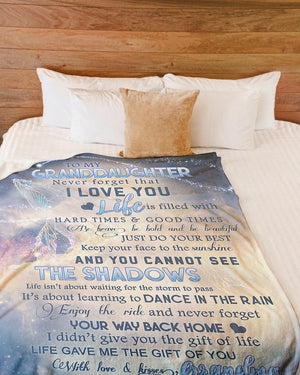 TO MY
GRANDDAUGHTER
Never forget that
I LOVE YOU
Life is filled with
HARD TIMES & GOOD TIMES
Be brave be bold and be beautiful
JUST DO YOUR BEST
Keep your face to the sunshine
AND YOU CANNOT SEE
THE SHADOWS
Life isn't about waiting for the storm to pass
It's about learning to DANCE IN THE RAIN
Enjoy the ride and never forget
YOUR WAY BACK HOME
I didn't give you the gift of life
LIFE GAVE ME THE GIFT OF YOU
With love & kisses
Grandma